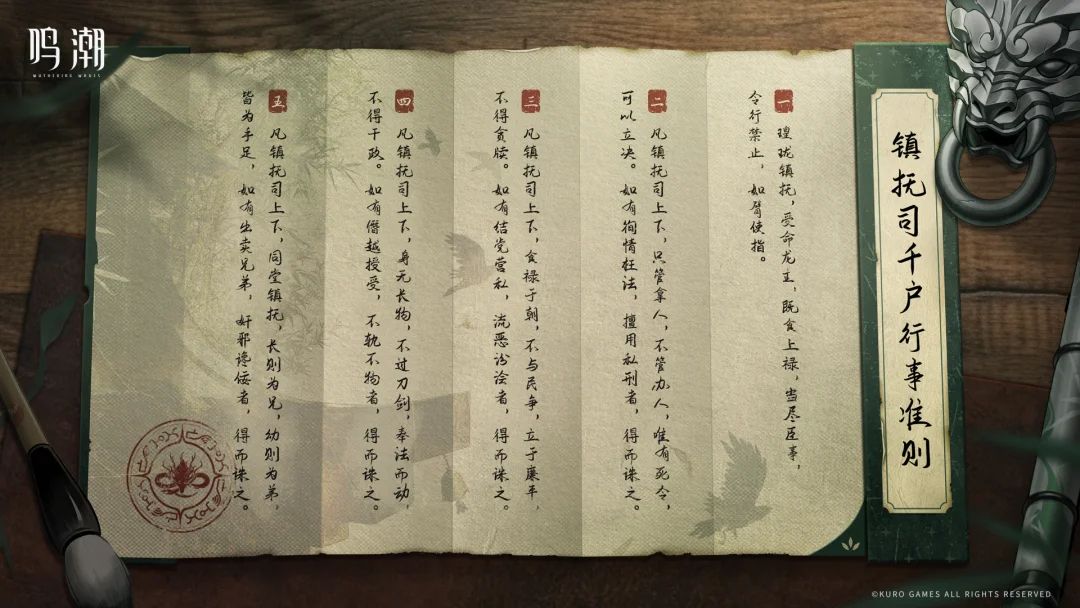 鸣潮
WUTHERING WAVES
镇抚司千户行事准则
一 瑝珑镇抚，受命龙主，既食上禄，当尽臣事，
令行禁止，如臂使指。
二 凡镇抚司上下，只管拿人，不管办人，唯有死令，
可以立决。如有徇情枉法，擅用私刑者，得而诛之。
三 凡镇抚司上下，食禄于朝，不与民争，立于廉平，
不得贪赎。如有结党营私，流恶沴浍者，得而诛之。
四 凡镇抚司上下，身无长物，不过刀剑，奉法而动，
不得干政。如有僭越授受，不轨不物者，得而诛之。
五 凡镇抚司上下，同堂镇抚，长则为兄，幼则为弟，
皆为手足，如有出卖兄弟，奸邪谗佞者，得而诛之。
©KURO GAMES ALL RIGHTS RESERVED